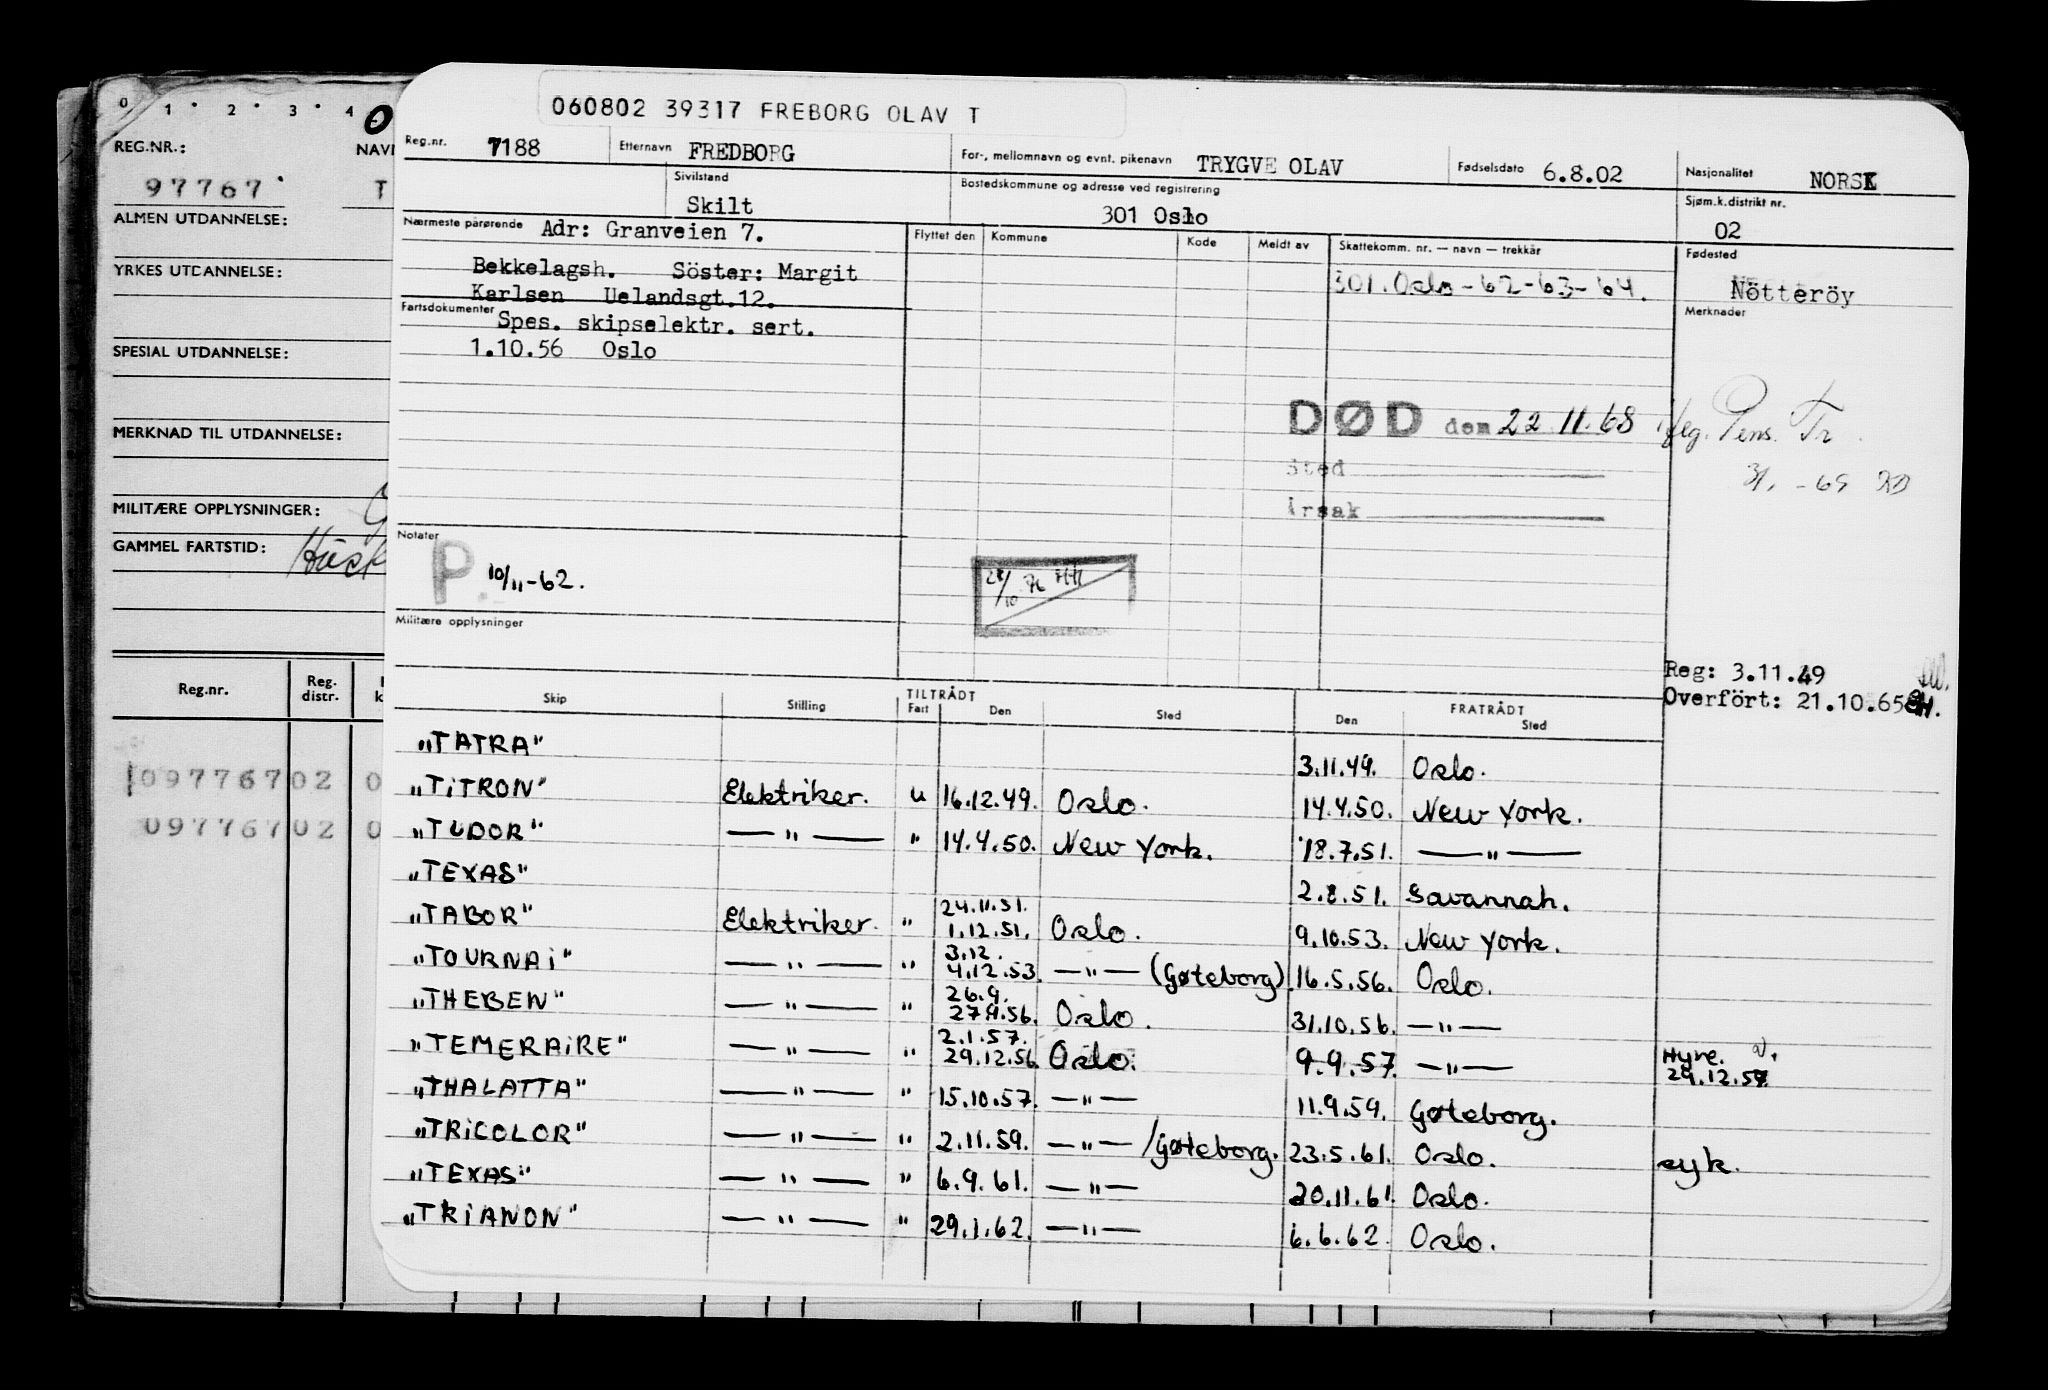 0 1 2 3 4
REG.NR.: NAV
97767 T
ALMEN UTDANNELSE:
YRKES UTDANNELSE:
SPESIAL UTDANNELSE:
MERKNAD TIL UTDANNELSE:
MILITÆRE OPPLYSNINGER:
GAMMEL FARTSTID:
Reg.nr. Reg. distr.
09776702 0
09776702 0
060802 39317 FREBORG OLAV T
Reg.nr. 7188 Etternavn FREDBORG For-, mellomnavn og evnt. pikenavn TRYGVE OLAV Fødselsdato 6.8.02 Nasjonalitet NORSK
Sivilstand Skilt Bostedskommune og adresse ved registrering 301 Oslo Sjøm.k.distrikt nr. 02
Nærmeste pårørende Adr: Granveien 7. Flyttet den Kommune Kode Meldt av Skattekomm. nr. — navn — trekkår Fødested
Bekkelagsh. Söster: Margit 301. Oslo - 62 - 63 - 64. Nötteröy
Karlsen Uelandsgt.12.
Fartsdokumenter Spes. skipselektr. sert. Merknader
1.10.56 Oslo
DØD den 22.11.68 Pens. Tr
Sted
Årsak
Notater
P. 10/11-62.
28/10 76
Militære opplysninger
Reg: 3.11.49
Overfört: 21.10.65
Skip Stilling TILTRÅDT Fart Den Sted FRATRÅDT Den Sted
"TATRA" 3.11.49. Oslo.
"TITRON" Elektriker. u 16.12.49. Oslo. 14.4.50. New York.
"TUDOR" — " — " 14.4.50. New York. 18.7.51. — " —
"TEXAS" 2.8.51. Savannah.
"TABOR" Elektriker. " 24.11.51. 1.12.51. Oslo. 9.10.53. New York.
"TOURNAI" — " — " 3.12. 4.12.53. — " — (Gøteborg). 16.5.56. Oslo.
"THEBEN" — " — " 26.9. 27.9.56. Oslo. 31.10.56. — " —
"TEMERAIRE" — " — " 2.1.57. 29.12.56 Oslo. 9.9.57. — " — Hyre. 29.12.57
"THALATTA" — " — " 15.10.57. — " — 11.9.59. Gøteborg.
"TRICOLOR" — " — " 2.11.59. — " — /Gøteborg. 23.5.61. Oslo. syk.
"TEXAS" — " — " 6.9.61. — " — 20.11.61. Oslo.
"TRIANON" — " — " 29.1.62. — " — 6.6.62. Oslo.